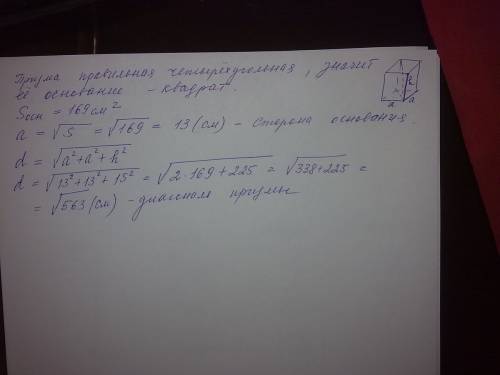 Призма правильная четырёхугольная, значит
её основание - квадрат.
Sосн = 169 см²
a = √S = √169 = 13 (см) - сторона основания.
d = √a²+a²+h²
d = √13²+13²+15² = √2·169+225 = √338+225 =
= √563 (см) - диагональ призмы
h
a
a